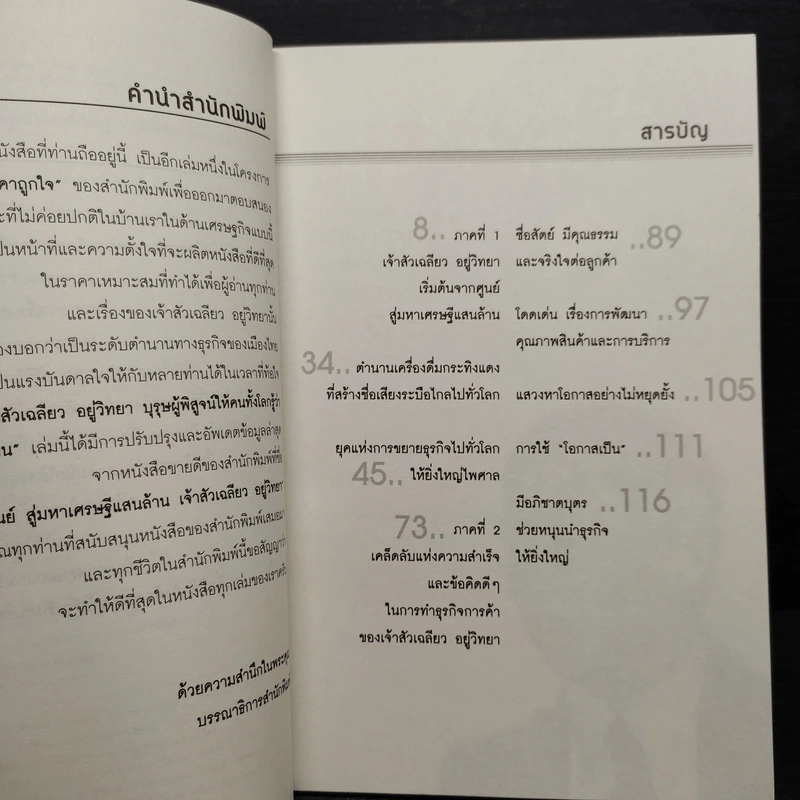 คำนำสำนักพิมพ์
นังสือที่ท่านถืออยู่นี้ เป็นอีกเล่มหนึ่งในโครงการ
คาถูกใจ" ของสำนักพิมพ์เพื่อออกมาตอบสนอง
ะที่ไม่ค่อยปกติในบ้านเราในด้านเศรษฐกิจแบบนี้
ป็นหน้าที่และความตั้งใจที่จะผลิตหนังสือที่ดีที่สุด
ในราคาเหมาะสมที่ทำได้เพื่อผู้อ่านทุกท่าน
และเรื่องของเจ้าสัวเฉลียว อยู่วิทยานั้น
องบอกว่าเป็นระดับตำนานทางธุรกิจของเมืองไทย
ป็นแรงบันดาลใจให้กับหลายท่านได้ในเวลาที่ท้อใจ
สัวเฉลียว อยู่วิทยา บุรุษผู้พิสูจน์ให้คนทั้งโลกรู้ว่า
าน" เล่มนี้ได้มีการปรับปรุงและอัพเดตข้อมูลล่าสุด
จากหนังสือขายดีของสำนักพิมพ์ที่ชื่อ
นย์ สู่มหาเศรษฐีแสนล้าน เจ้าสัวเฉลียว อยู่วิทยา"
ุณทุกท่านที่สนับสนุนหนังสือของสำนักพิมพ์เสมอมา
และทุกชีวิตในสำนักพิมพ์นี้ขอสัญญาว่า
จะทำให้ดีที่สุดในหนังสือทุกเล่มของเราครับ
ด้วยความสำนึกในพระคุณ
บรรณาธิการสำนักพิมพ์
สารบัญ
8.. ภาคที่ 1
เจ้าสัวเฉลียว อยู่วิทยา
เริ่มต้นจากศูนย์
สู่มหาเศรษฐีแสนล้าน
34.. ตำนานเครื่องดื่มกระทิงแดง
ที่สร้างชื่อเสียงระบือไกลไปทั่วโลก
ยุคแห่งการขยายธุรกิจไปทั่วโลก
45.. ให้ยิ่งใหญ่ไพศาล
73.. ภาคที่ 2
เคล็ดลับแห่งความสำเร็จ
และข้อคิดดีๆ
ในการทำธุรกิจการค้า
ของเจ้าสัวเฉลียว อยู่วิทยา
ซื่อสัตย์ มีคุณธรรม ..89
และจริงใจต่อลูกค้า
โดดเด่น เรื่องการพัฒนา ..97
คุณภาพสินค้าและการบริการ
แสวงหาโอกาสอย่างไม่หยุดยั้ง ..105
การใช้ "โอกาสเป็น" ..111
มีอภิชาตบุตร ..116
ช่วยหนุนนำธุรกิจ
ให้ยิ่งใหญ่